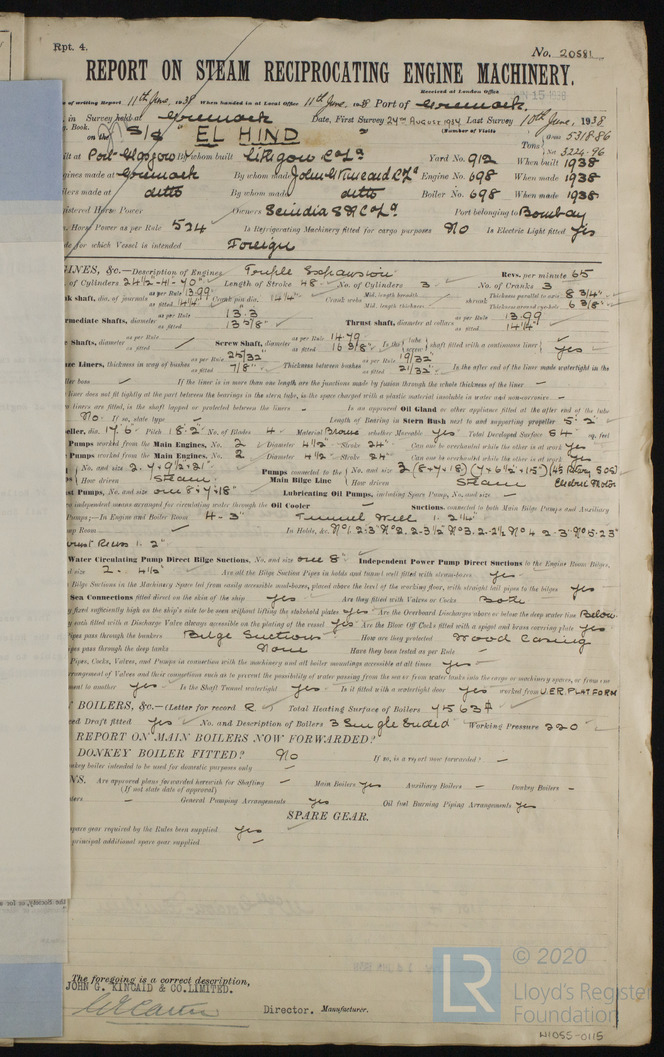 Rpt. 4.
No. 20581
REPORT ON STEAM RECIPROCATING ENGINE MACHINERY.
Received at London Office
of writing Report 11th June, 1938 When handed in at Local Office 11th June, 1938 Port of Greenock
in Survey held at Greenock Date, First Survey 24th August 1937 Last Survey 10th June, 1938
Book. (Number of Visits
on the S/S "EL HIND" Tons Gross 5318.86
Net 3224.96
ilt at Port-Glasgow By whom built Lithgow Ld Yard No. 912 When built 1938
gines made at Greenock By whom made John G Kincaid & Co Ld Engine No. 698 When made 1938
ilers made at ditto By whom made ditto Boiler No. 698 When made 1938
gistered Horse Power Owners Scindia S N Co Ld Port belonging to Bombay
Horse Power as per Rule 524 Is Refrigerating Machinery fitted for cargo purposes No Is Electric Light fitted Yes
de for which Vessel is intended Foreign
GINES, &c.—Description of Engines Triple Expansion Revs. per minute 65
of Cylinders 24½"-41"-70" Length of Stroke 48" No. of Cylinders 3 No. of Cranks 3
nk shaft, dia. of journals as per Rule 13.99 as fitted 14¼" Crank pin dia. 14¼" Crank webs Mid. length breadth Mid. length thickness shrunk Thickness parallel to axis 8¾" Thickness around eyehole 6⅜"
rmediate Shafts, diameter as per Rule 13.3 as fitted 13⅜" Thrust shaft, diameter at collars as per Rule 13.99 as fitted 14¼"
e Shafts, diameter as per Rule as fitted Screw Shaft, diameter as per Rule 14.79 as fitted 16⅜" Is the tube screw shaft fitted with a continuous liner Yes
ze Liners, thickness in way of bushes as per Rule 25/32" as fitted 7/8" Thickness between bushes as per Rule 19/32" as fitted 21/32" Is the after end of the liner made watertight in the
ller boss If the liner is in more than one length are the junctions made by fusion through the whole thickness of the liner
liner does not fit tightly at the part between the bearings in the stern tube, is the space charged with a plastic material insoluble in water and non-corrosive
liners are fitted, is the shaft lapped or protected between the liners Is an approved Oil Gland or other appliance fitted at the after end of the tube
No If so, state type Length of Bearing in Stern Bush next to and supporting propeller 5'.2"
peller, dia. 17'.6" Pitch 18'.2" No. of Blades 4 Material Bronze whether Moveable Yes Total Developed Surface 84 sq. feet
Pumps worked from the Main Engines, No. 2 Diameter 4½" Stroke 24" Can one be overhauled while the other is at work Yes
Pumps worked from the Main Engines, No. 2 Diameter 4½" Stroke 24" Can one be overhauled while the other is at work Yes
No. and size 2. 7 x 9½ x 21" Pumps connected to the No. and size
How driven Steam Main Bilge Line How driven Steam Electric Motor
st Pumps, No. and size one 8 x 7 x 18" Lubricating Oil Pumps, including Spare Pump, No. and size
independent means arranged for circulating water through the Oil Cooler Suctions, connected to both Main Bilge Pumps and Auxiliary
Pumps;—In Engine and Boiler Room 4 - 3" Tunnel Well 1. 2½"
mp Room In Holds, &c. No1. 2.3" No2. 2.3½" No3. 2.2½" No4 2-3" No5.2.3"
Thrust Recess 1. 2"
Water Circulating Pump Direct Bilge Suctions, No. and size one 8" Independent Power Pump Direct Suctions to the Engine Room Bilges,
size 2. 4½" Are all the Bilge Suction Pipes in holds and tunnel well fitted with strum-boxes Yes
Bilge Suctions in the Machinery Space led from easily accessible mud-boxes, placed above the level of the working floor, with straight tail pipes to the bilges Yes
Sea Connections fitted direct on the skin of the ship Yes Are they fitted with Valves or Cocks Both
fixed sufficiently high on the ship's side to be seen without lifting the stokehold plates Yes Are the Overboard Discharges above or below the deep water line Below
each fitted with a Discharge Valve always accessible on the plating of the vessel Yes Are the Blow Off Cocks fitted with a spigot and brass covering plate Yes
pipes pass through the bunkers Bilge Suctions How are they protected Wood Casing
es pass through the deep tanks None Have they been tested as per Rule
Pipes, Cocks, Valves, and Pumps in connection with the machinery and all boiler mountings accessible at all times Yes
rrangement of Valves and their connections such as to prevent the possibility of water passing from the sea or from water tanks into the cargo or machinery spaces, or from one
ment to another Yes Is the Shaft Tunnel watertight Yes Is it fitted with a watertight door Yes worked from U.E.R. PLATFORM
BOILERS, &c.—(Letter for record R Total Heating Surface of Boilers 7563
ed Draft fitted Yes No. and Description of Boilers 3 Single Ended Working Pressure 220
REPORT ON MAIN BOILERS NOW FORWARDED?
DONKEY BOILER FITTED? No If so, is a report now forwarded?
nkey boiler intended to be used for domestic purposes only
NS. Are approved plans forwarded herewith for Shafting Main Boilers Yes Auxiliary Boilers Donkey Boilers
(If not state date of approval)
General Pumping Arrangements Yes Oil fuel Burning Piping Arrangements Yes
SPARE GEAR.
spare gear required by the Rules been supplied Yes
principal additional spare gear supplied
The foregoing is a correct description,
JOHN G. KINCAID & CO. LIMITED.
Director. Manufacturer.
LR
© 2020
Lloyd's Register
Foundation
W1055-0115